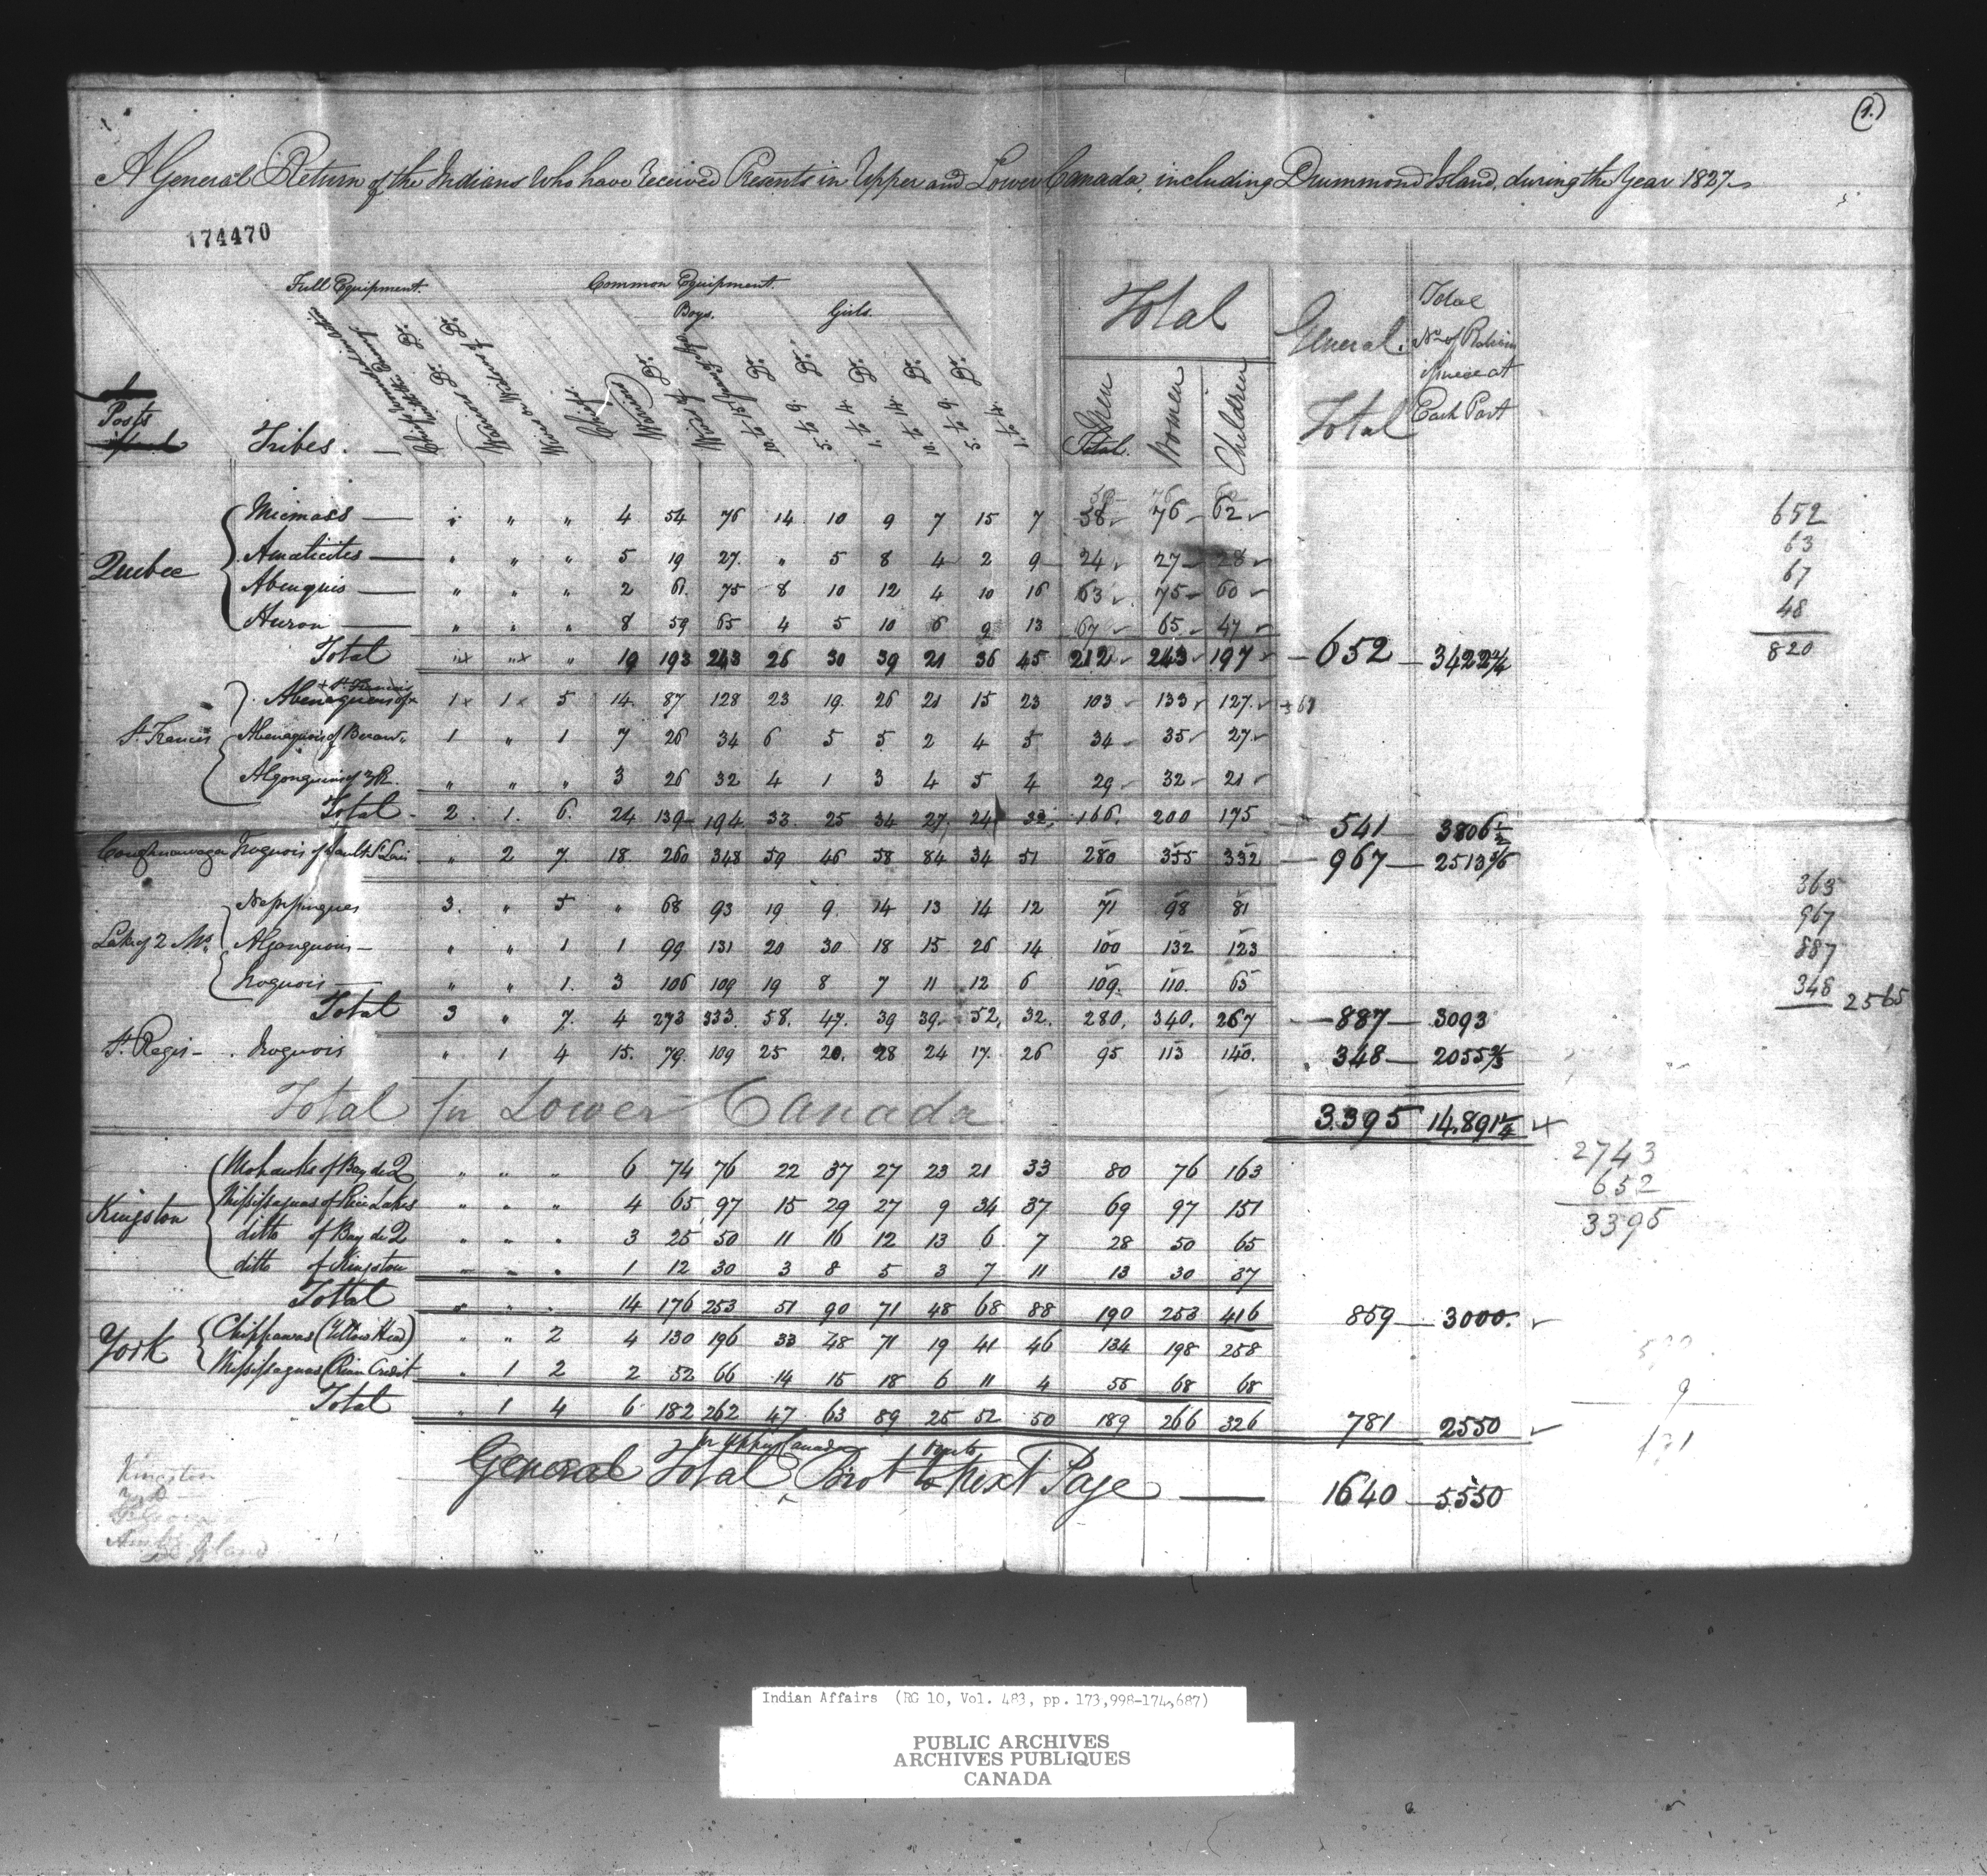 (1.)
A General Return of the Indians who have received Presents in Upper and Lower Canada, including Drummond Island, during the Year 1827
174470
Full Equipment. Common Equipment.
Boys. Girls. Total General Total Total No. of Rations issued at Each Post
Posts Tribes. Chiefs Warriors Do. Do. Do. Do. Do. Do. Do. 10 to 15 5 to 9. 1 to 4. 10 to 14. 5 to 9. 1 to 4. Men Total. Women Children
Quebec
Micmacs " " " 4 54 76 14 10 9 7 15 7 58 76 62
Amalicites " " " 5 19 27. " 5 8 4 2 9 24 27 28
Abenquis " " " 2 61. 75 8 10 12 4 10 16 63 75 60
Huron " " " 8 59 65 4 5 10 6 9 13 67 65 47
Total " " " 19 193 243 26 30 39 21 36 45 212 243 197 652 3422 2/4
St. Francis
Abenaquois of St. Francis 1 1 5 14 87 128 23 19. 26 21 15 23 103 133 127.
Abenaquois of Becan 1 " 1 7 26 34 6 5 5 2 4 5 34 35 27
Algonquins of 3 R. " " " 3 26 32 4 1 3 4 5 4 29 32 21
Total 2 1. 6. 24 139 194 33 25 34 27 24 32 166. 200 175 541 3806 1/2
Coughnawaga Iroquois of Sault St. Louis " 2 7. 18. 260 348 59 46 58 84 34 51 280 355 332 967 2513 5/6
Lake of 2 Ms.
Nepissingues 3. " 5 " 68 93 19 9. 14 13 14 12 71 98 81
Algonquois " " 1 1 99 131 20 30 18 15 26 14 100 132 123
Iroquois " " 1. 3 106 109 19 8 7 11 12 6 109. 110. 63
Total 3 " 7. 4 273 333. 58. 47. 39 39. 52, 32. 280, 340. 267 887 3093
St. Regis Iroquois " 1 4 15. 79. 109 25 20. 28 24 17. 26 95 113 140. 348 2055 2/3
Total for Lower Canada 3395 14,891 1/4
Kingston
Mohawks of Bay de Q " " " 6 74 76 22 37 27 23 21 33 80 76 163
Mississaguas of Rice Lakes " " " 4 65 97 15 29 27 9 34 37 69 97 151
ditto of Bay de Q " " " 3 25 50 11 16 12 13 6 7 28 50 65
ditto of Kingston " " " 1 12 30 3 8 5 3 7 11 13 30 37
Total " " " 14 176 253 51 90 71 48 68 88 190 253 416 859 3000.
York
Chippawas (Yellow Head) " " 2 4 130 196 33 48 71 19 41 46 134 198 258
Mississaguas (River Credit " 1 2 2 52 66 14 15 18 6 11 4 55 68 68
Total " 1 4 6 182 262 47 63 89 25 52 50 189 266 326 781 2550
General Total in Upper Canada Brot to Next Page 1640 5550
652
63
67
48
820
363
967
887
348 2565
2743
652
3395
Kingston
York
Island
Indian Affairs (RG 10, Vol. 483, pp. 173,998-174,687)
PUBLIC ARCHIVES
ARCHIVES PUBLIQUES
CANADA